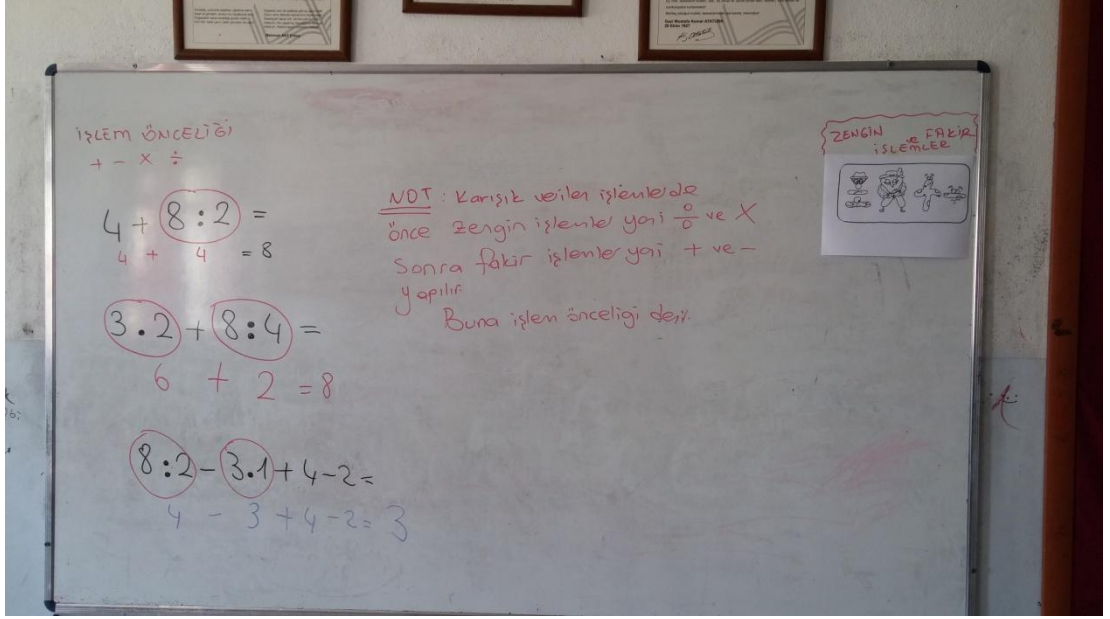 İŞLEM ÖNCELİĞİ
+ - x ÷
4 + 8 : 2 =
4 + 4 = 8
3 . 2 + 8 : 4 =
6 + 2 = 8
8 : 2 - 3 . 1 + 4 - 2 =
4 - 3 + 4 - 2 = 3
NOT : Karışık verilen işlemlerde
önce zengin işlemler yani ÷ ve X
Sonra fakir işlemler yani + ve -
yapılır.
Buna işlem önceliği denir.
ZENGİN ve FAKİR
İŞLEMLER